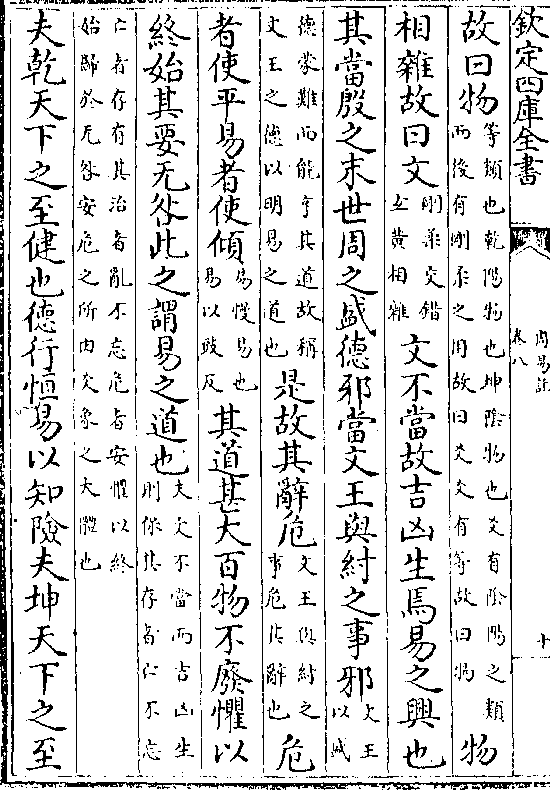 欽定四庫全書
周易註
卷八
十
故曰物等類也乾陽物也坤陰物也爻有陰陽之類而後有剛柔之用故曰爻爻有等故曰物物
相雜故曰文剛柔交錯𤣥黄相雜文不當故吉凶生焉易之興也
其當殷之末世周之盛德邪當文王與紂之事邪文王以盛
德蒙難而能亨其道故稱文王之德以明易之道也是故其辭危文王與紂之事危其辭也危
者使平易者使傾易慢易也易以豉反其道甚大百物不廢懼以
終始其要无咎此之謂易之道也夫文不當而吉凶生則保其存者亡不忘
亡者存有其治者亂不忘危者安懼以終始歸於无咎安危之所由爻象之大體也
夫乾天下之至健也德行恒易以知險夫坤天下之至